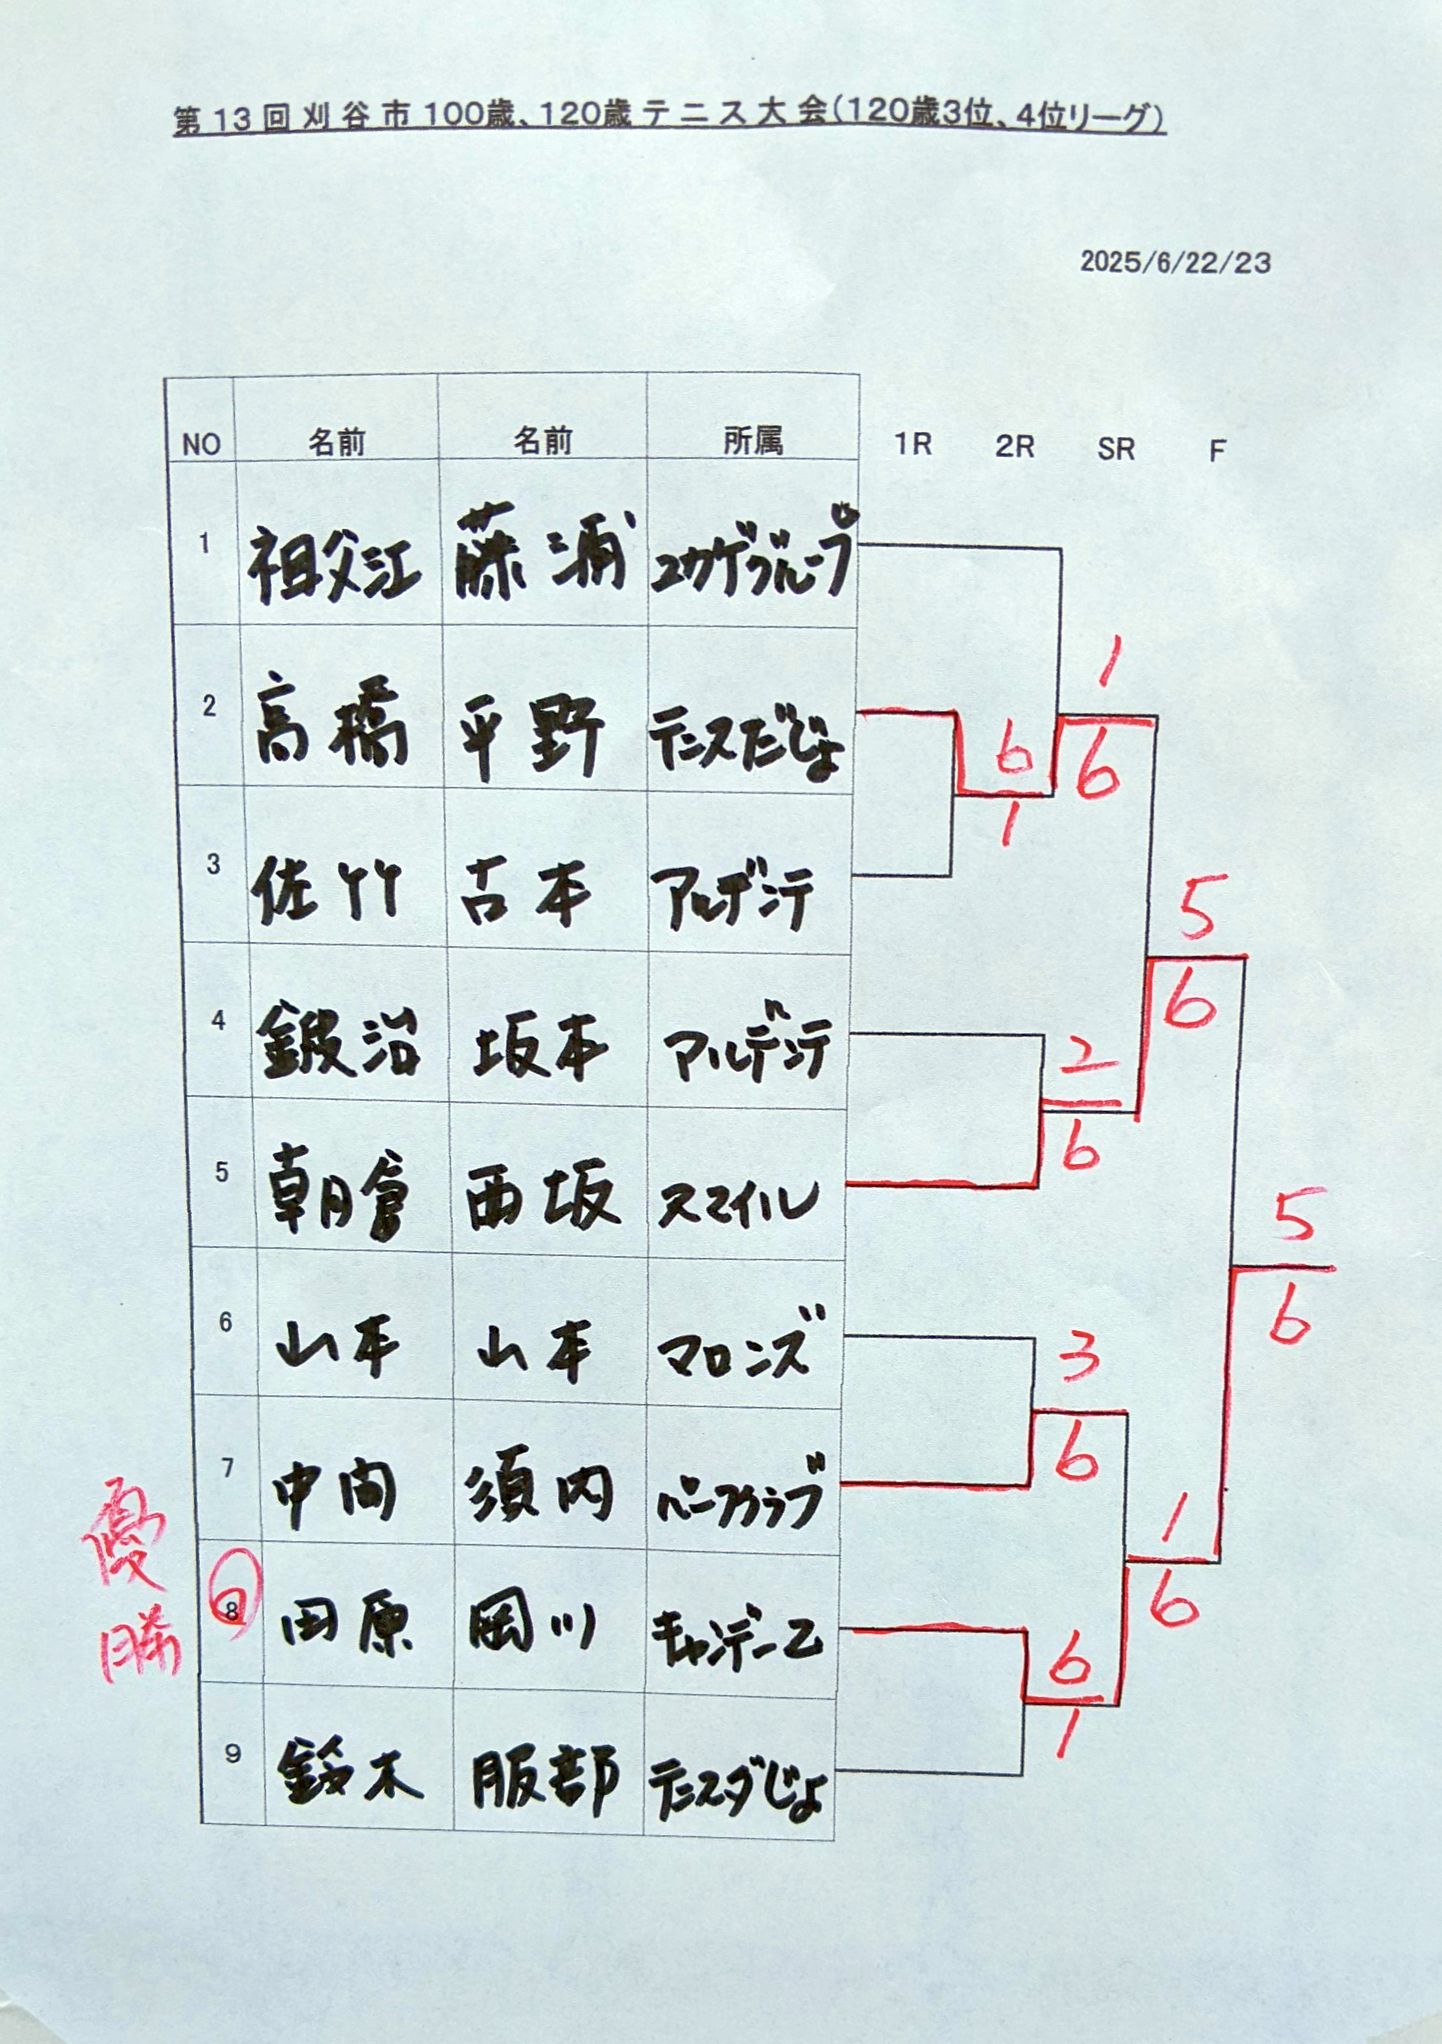 第13回刈谷市100歳、120歳テニス大会(120歳3位、4位リーグ)
2025/6/22/23
NO 名前 名前 所属 1R 2R SR F
1 祖父江 藤浦 ユカゲグループ
1
2 高橋 平野 テニスだじょ 6 6
1
3 佐竹 古本 アルデンテ 5
6
4 鍛治 坂本 アルデンテ 2
6
5 朝倉 西坂 スマイル 5
6
6 山本 山本 マロンズ 3
6
7 中間 須内 1
優勝 8 田原 岡川 キャンディーズ 6 6
1
9 鈴木 服部 テニスダじょ